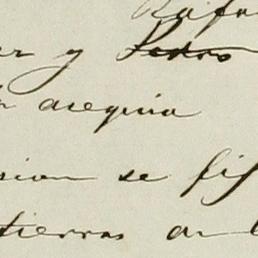 Rafa
er y Pedro
acequia
sion se fij
tierras en l